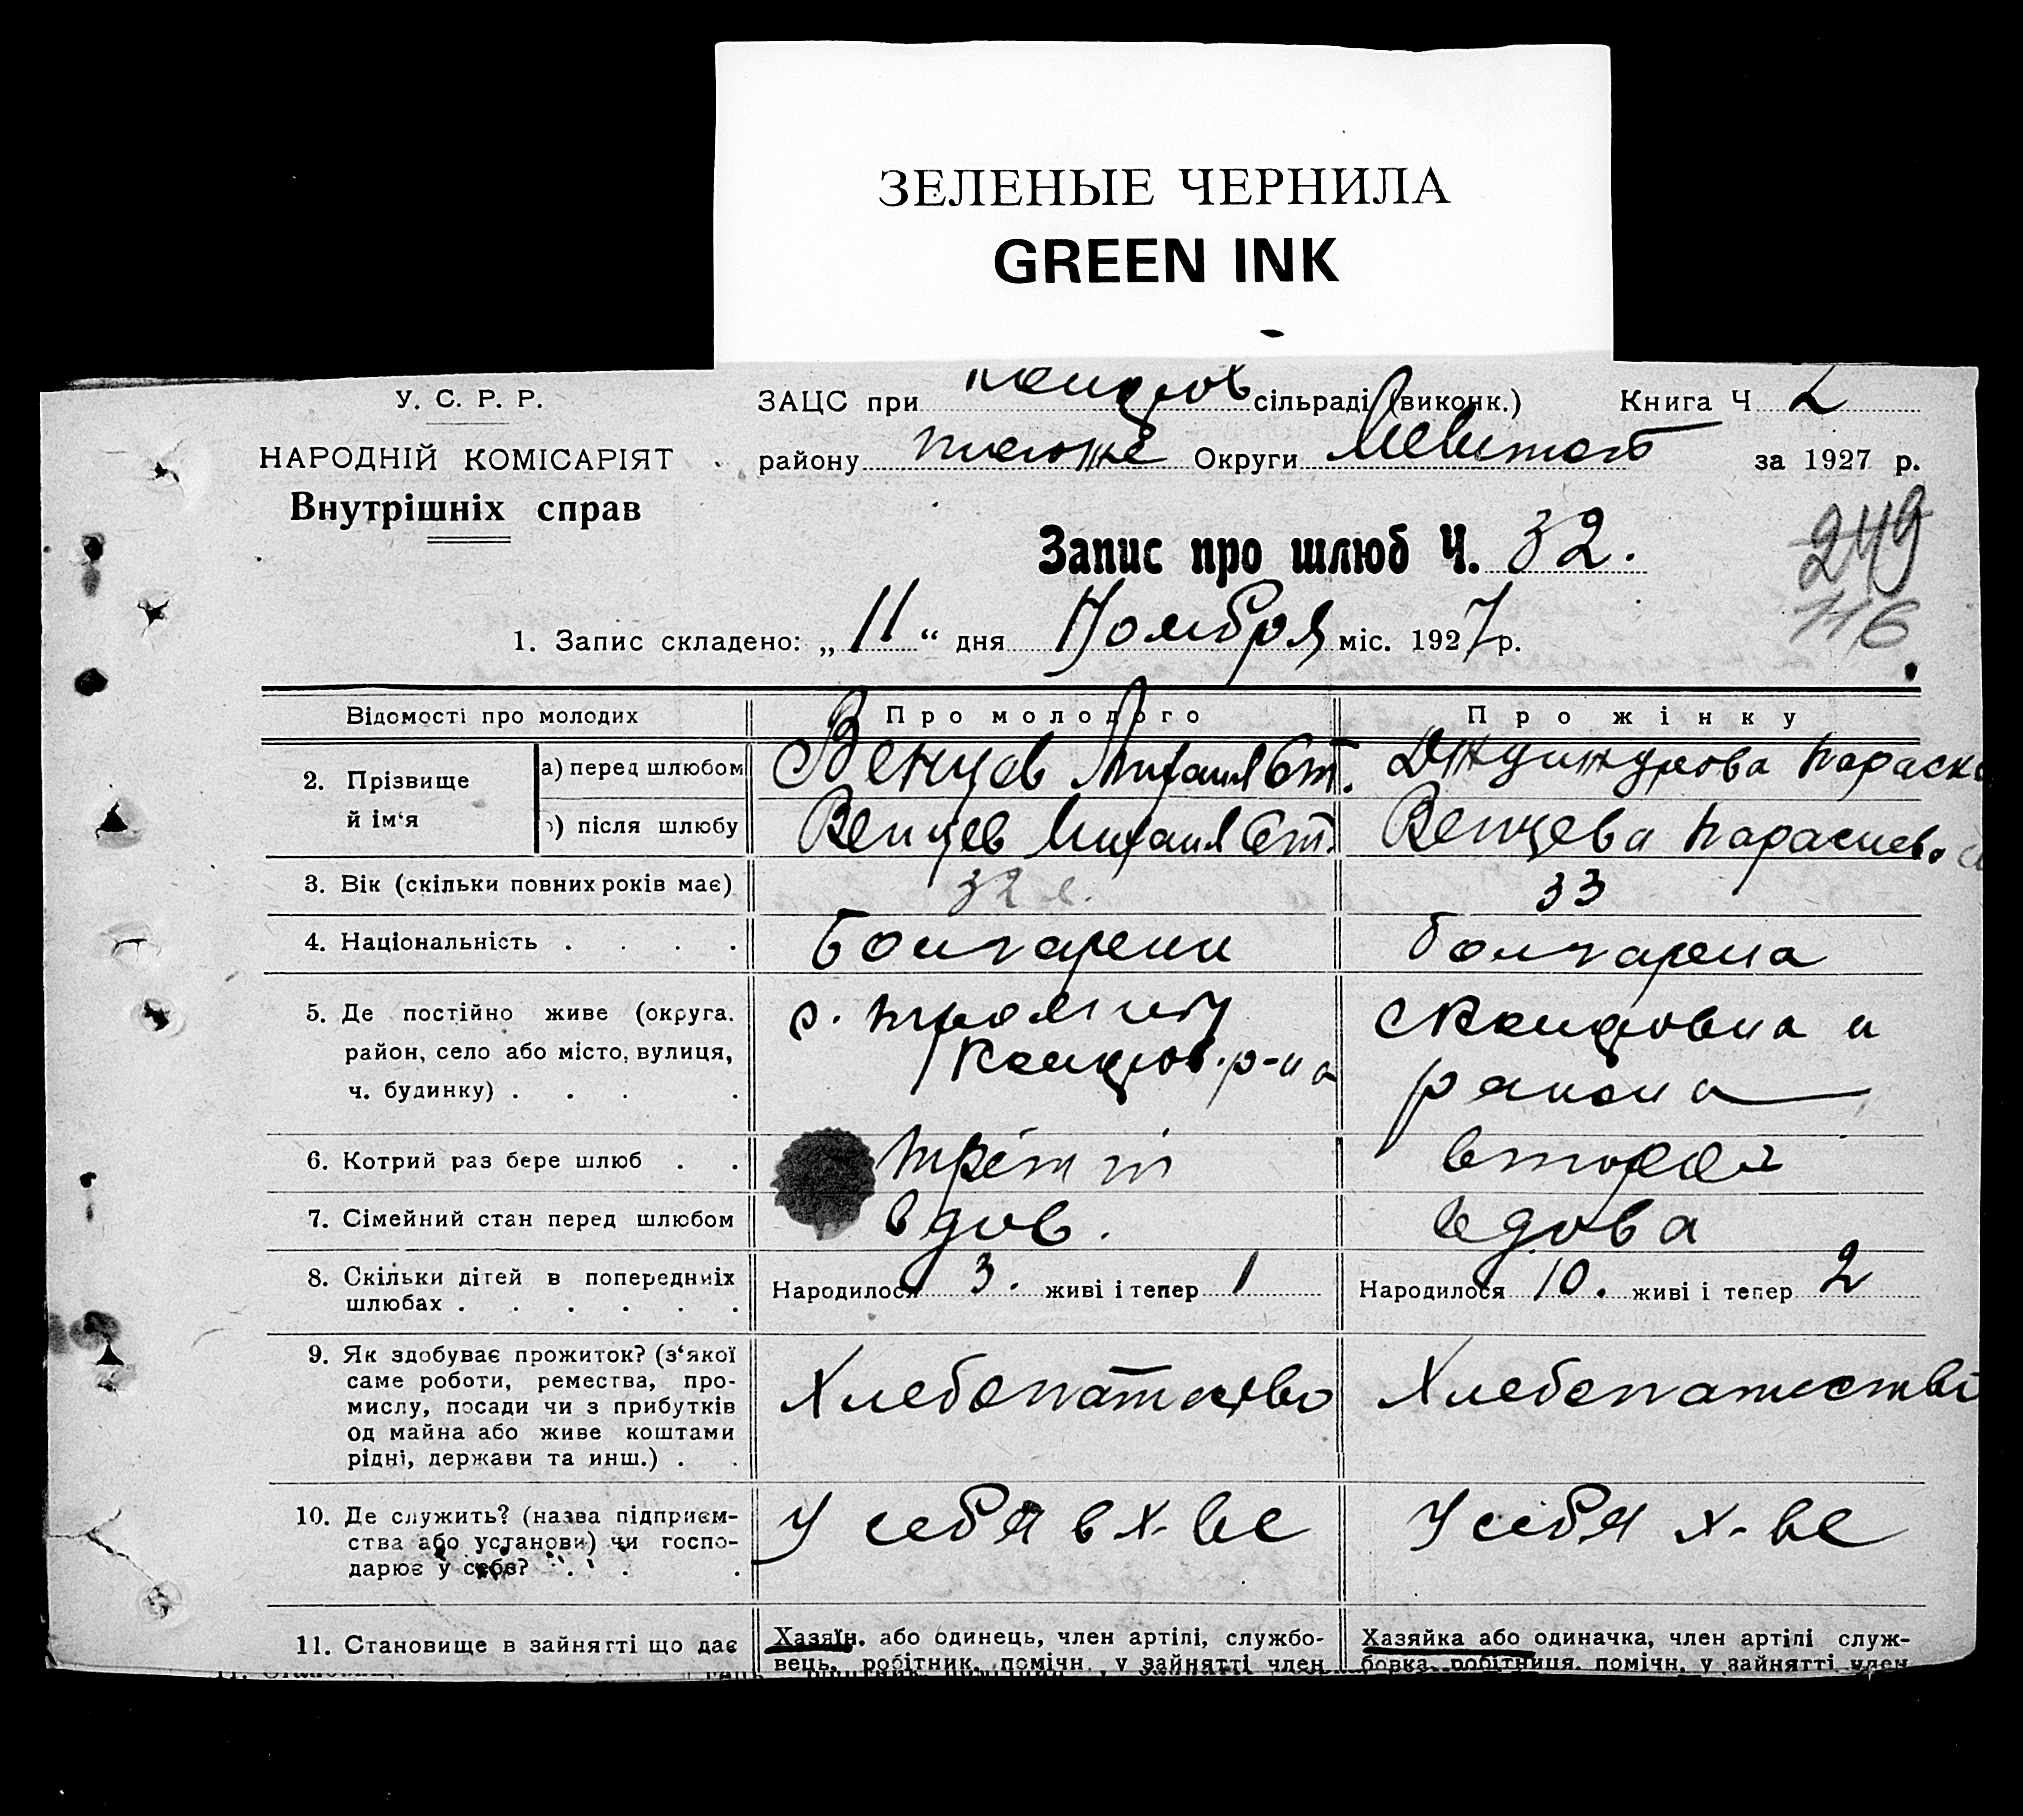 ЗЕЛЕНЫЕ ЧЕРНИЛА
GREEN INK
У. С. Р. Р.
НАРОДНІЙ КОМІСАРІЯТ
Внутрішніх справ
ЗАЦС при сільраді (виконк.) Книга Ч 2
району Округи за 1927 р.
Запис про шлюб Ч. 32.
249
116
1. Запис складено: „ 11 “ дня Ноября міс. 1927 р.
Відомості про молодих Про молодого Про жінку
2. Прізвище й ім'я
а) перед шлюбом Венцев Михаил Ст. Параске
б) після шлюбу Венцев Михаил Ст. Венцева
3. Вік (скільки повних років має) 32 л. 33
4. Національність . . . . Болгарин болгарка
5. Де постійно живе (округа.
район, село або місто, вулиця,
ч. будинку) . . . .
с. Троян
р-на
района
6. Котрий раз бере шлюб . . третій второй
7. Сімейний стан перед шлюбом вдов. вдова
8. Скільки дітей в попередніх
шлюбах . . . . . .
Народилося 3. живі і тепер 1 Народилося 10. живі і тепер 2
9. Як здобуває прожиток? (з'якої
саме роботи, ремества, про-
мислу, посади чи з прибутків
од майна або живе коштами
рідні, держави та инш.) . .
Хлебопашество Хлебопашество
10. Де служить? (назва підприєм-
ства або установи) чи госпо-
дарює у себе? . . .
У себя в х-ве У себя х-ве
11. Становище в зайнятті що дає
Хазяїн, або одинець, член артілі, службо-
вець, робітник, помічн. у зайнятті член
Хазяйка або одиначка, член артілі служ-
бовка, робітниця, помічн. у зайнятті член